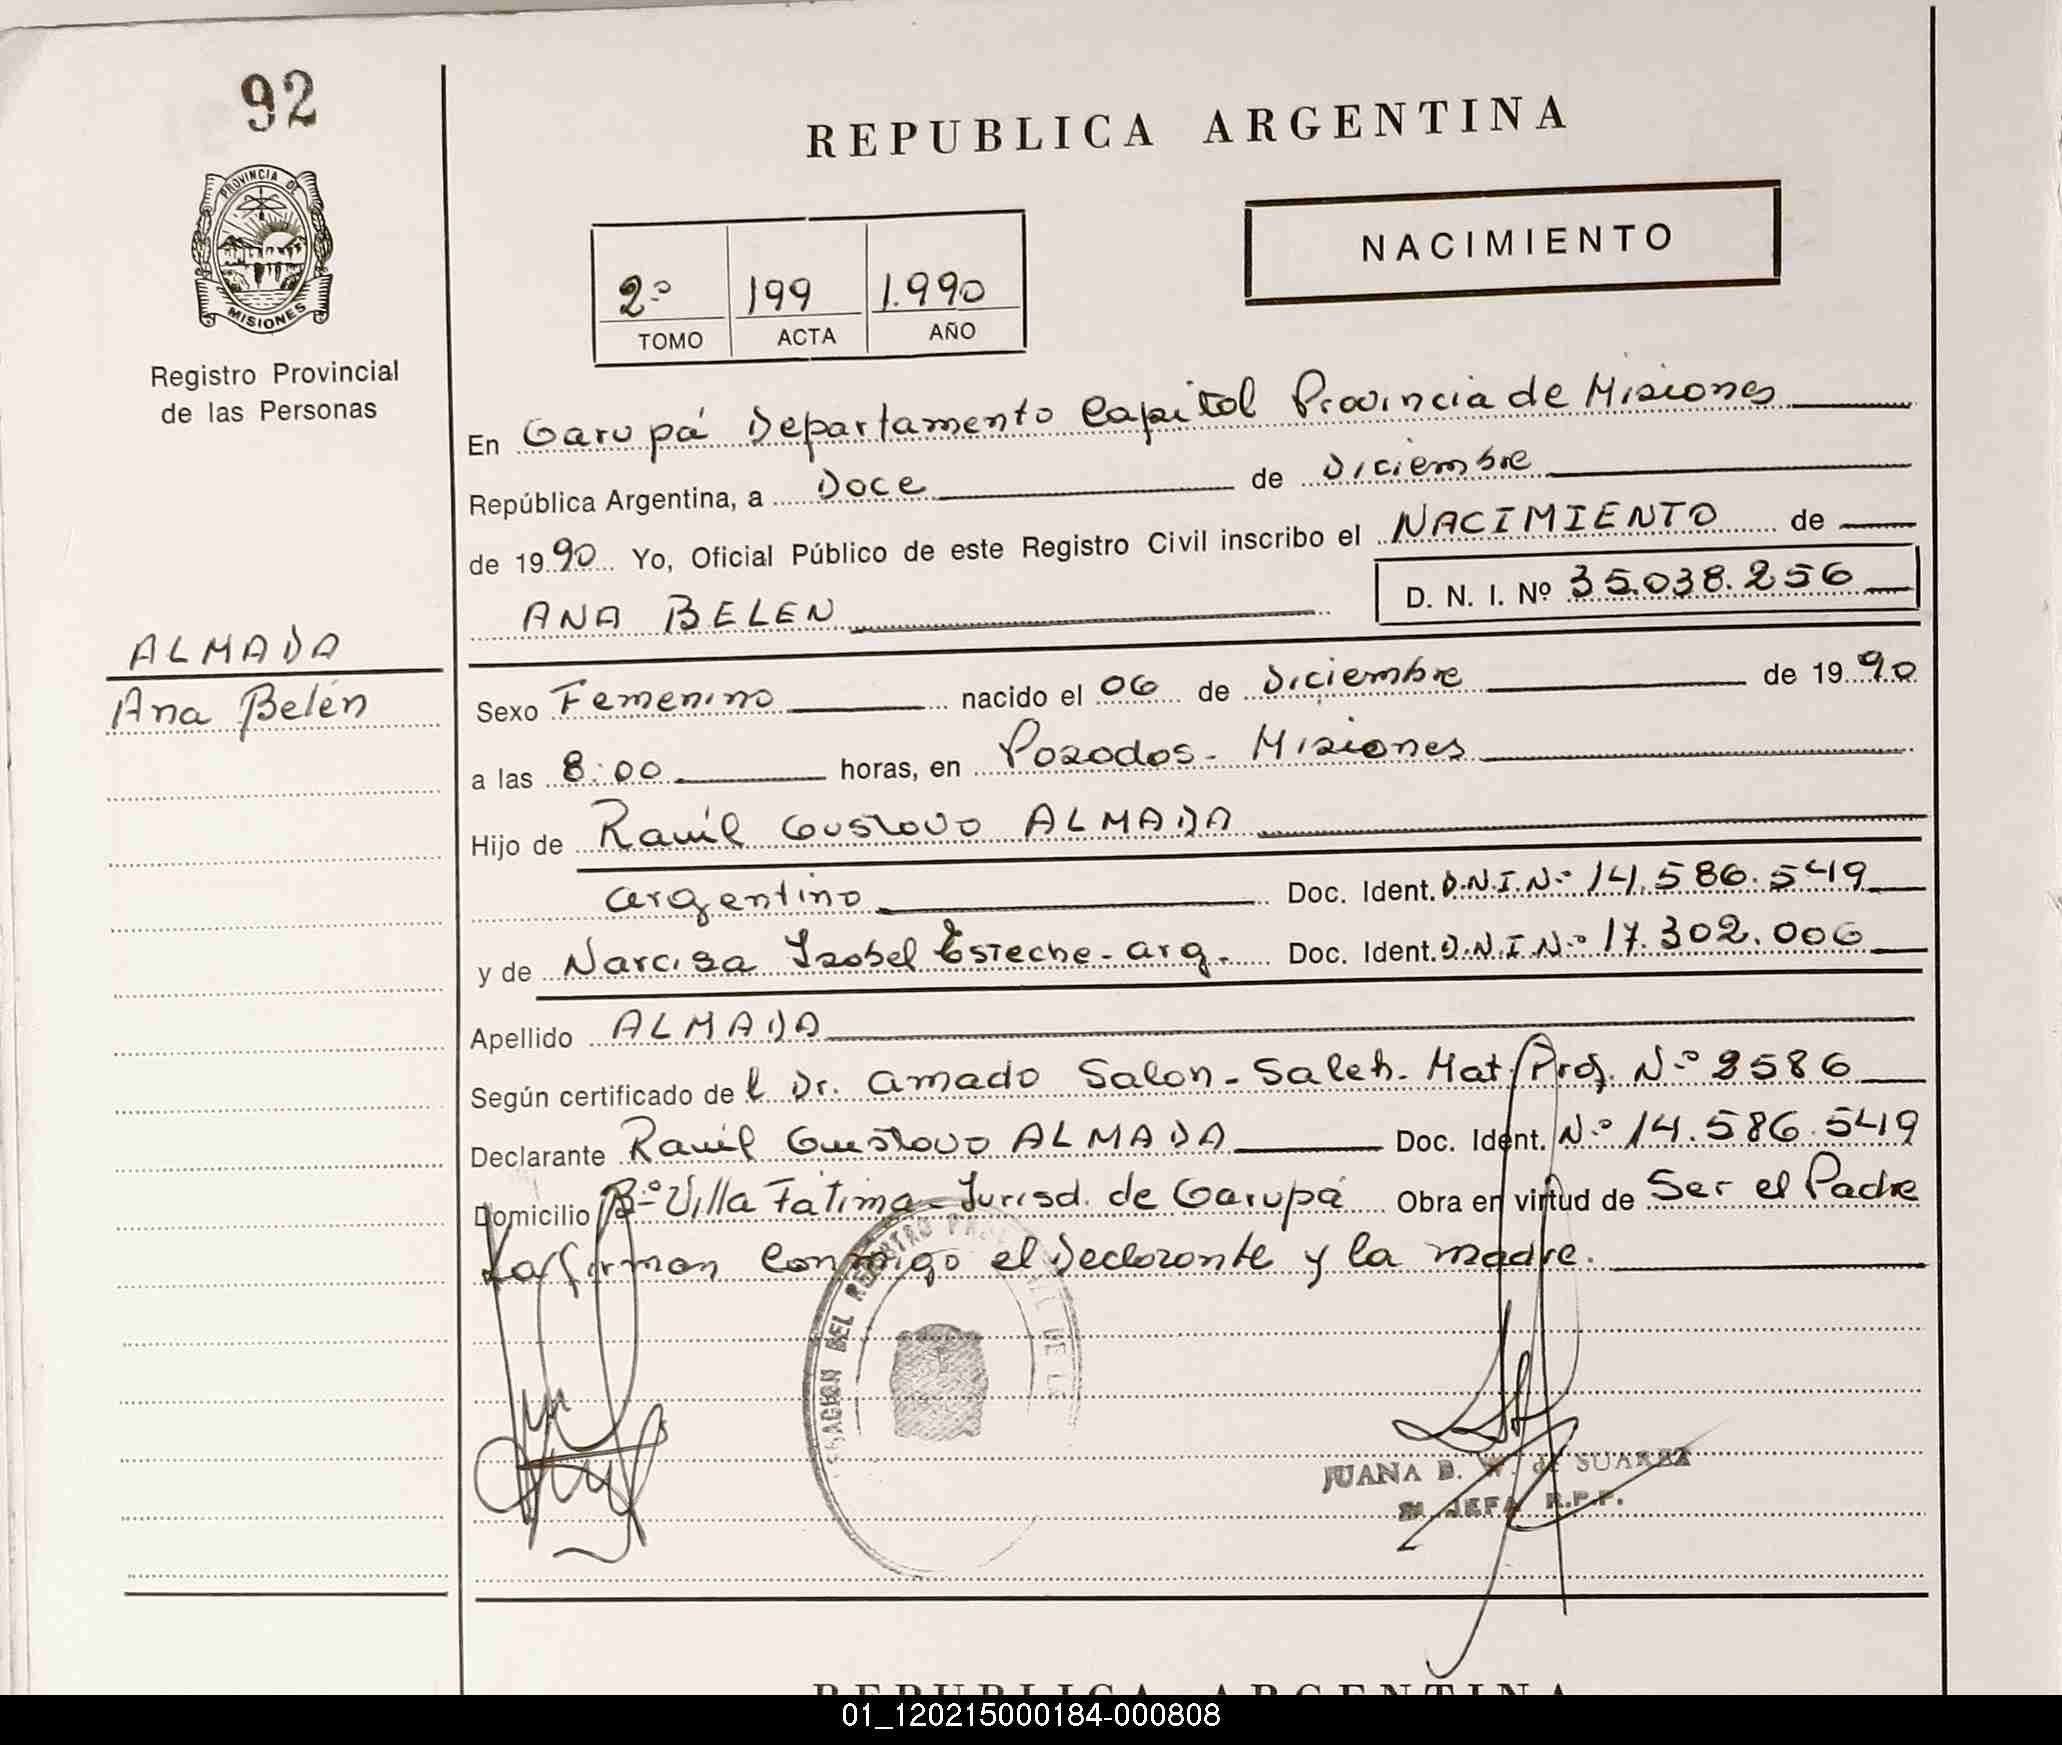 92
REPUBLICA ARGENTINA
PROVINCIA DE
MISIONES
NACIMIENTO
2º 199 1.990
TOMO ACTA AÑO
Registro Provincial
de las Personas
En Garupá Departamento Capital Provincia de Misiones
República Argentina, a Doce de Diciembre
de 1990 Yo, Oficial Público de este Registro Civil inscribo el NACIMIENTO de
ANA BELEN D. N. I. Nº 35.038.256
ALMADA
Ana Belén
Sexo Femenino nacido el 06 de Diciembre de 1990
a las 8:00 horas, en Posadas - Misiones
Hijo de Raúl Gustavo ALMADA
argentino Doc. Ident. D.N.I.Nº 14.586.549
y de Narcisa Isabel Esteche - arg. Doc. Ident. D.N.I.Nº 17.302.006
Apellido ALMADA
Según certificado del Dr. Amado Salon - Saleh - Mat. Prof. Nº 2586
Declarante Raúl Gustavo ALMADA Doc. Ident. Nº 14.586.549
Domicilio Bº Villa Fátima - Jurisd. de Garupá Obra en virtud de Ser el Padre
firman conmigo el declarante y la madre.
DEL REGISTRO DE
JUANA B. W. de SUAREZ
JEFA R.P.P.
REPUBLICA ARGENTINA
01_120215000184-000808